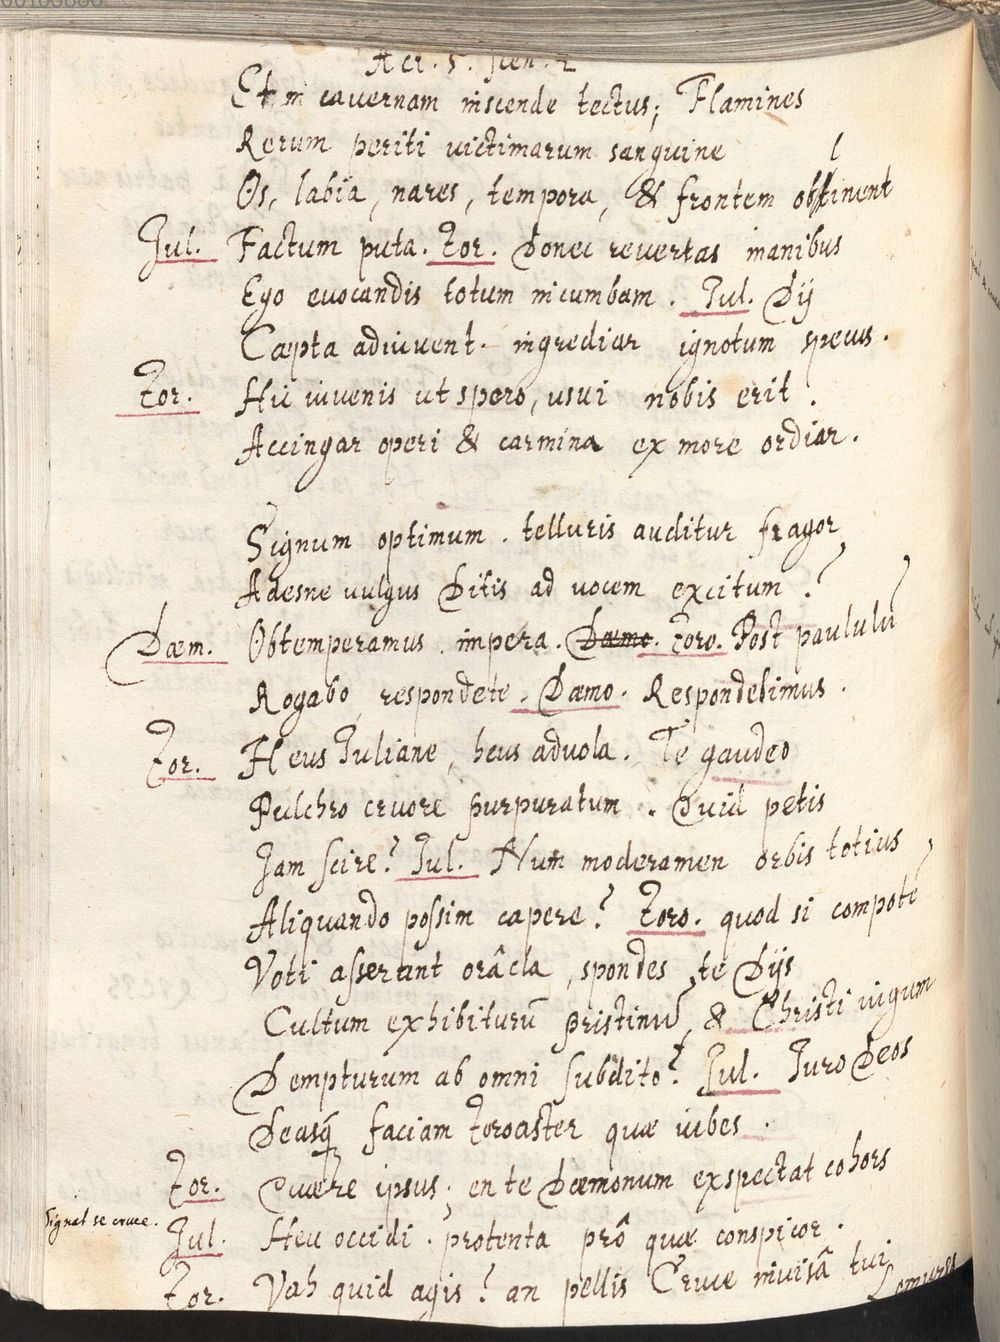 Act. 5. scen. 2
Et in cauernam inscende tectus; Flamines
Rerum periti uictimarum sanguine
Os, labia, nares, tempora, & frontem oblinent
Jul. Factum puta. Zor. Donec reuertas manibus
Ego euocandis totum incumbam. Jul. Dij
Cæpta adiuuent. ingrediar ignotum specus.
Zor. Hic iuuenis ut spero, usui nobis erit.
Accingar operi & carmina ex more ordiar.
Signum optimum. telluris auditur fragor,
Adesne uulgus Ditis ad uocem excitum?
Dæm. Obtemperamus. impera. Dæmo. Zoro. Post paululū
Rogabo, respondete. Dæmo. Respondebimus.
Zor. Heus Juliane, heus aduola. Te gaudeo
Pulchro cruore purpuratum. Quid petis
Jam scire? Jul. Num moderamen orbis totius
Aliquando possim capere? Zoro. quod si compotē
Voti asserant orâcla, spondes te Dijs
Cultum exhibiturū pristinū, & Christi iugum
Dempturum ab omni subdito? Jul. Juro Deos
Deasq; faciam Zoroaster quæ iubes.
Zor. Quære ipsus; en te Dæmonum exspectat cohors
Signat se cruce.
Jul. Heu occidi. protenta prô quæ conspicor.
Zor. Vah quid agis? an pellis Cruce inuisâ tui
Lemures